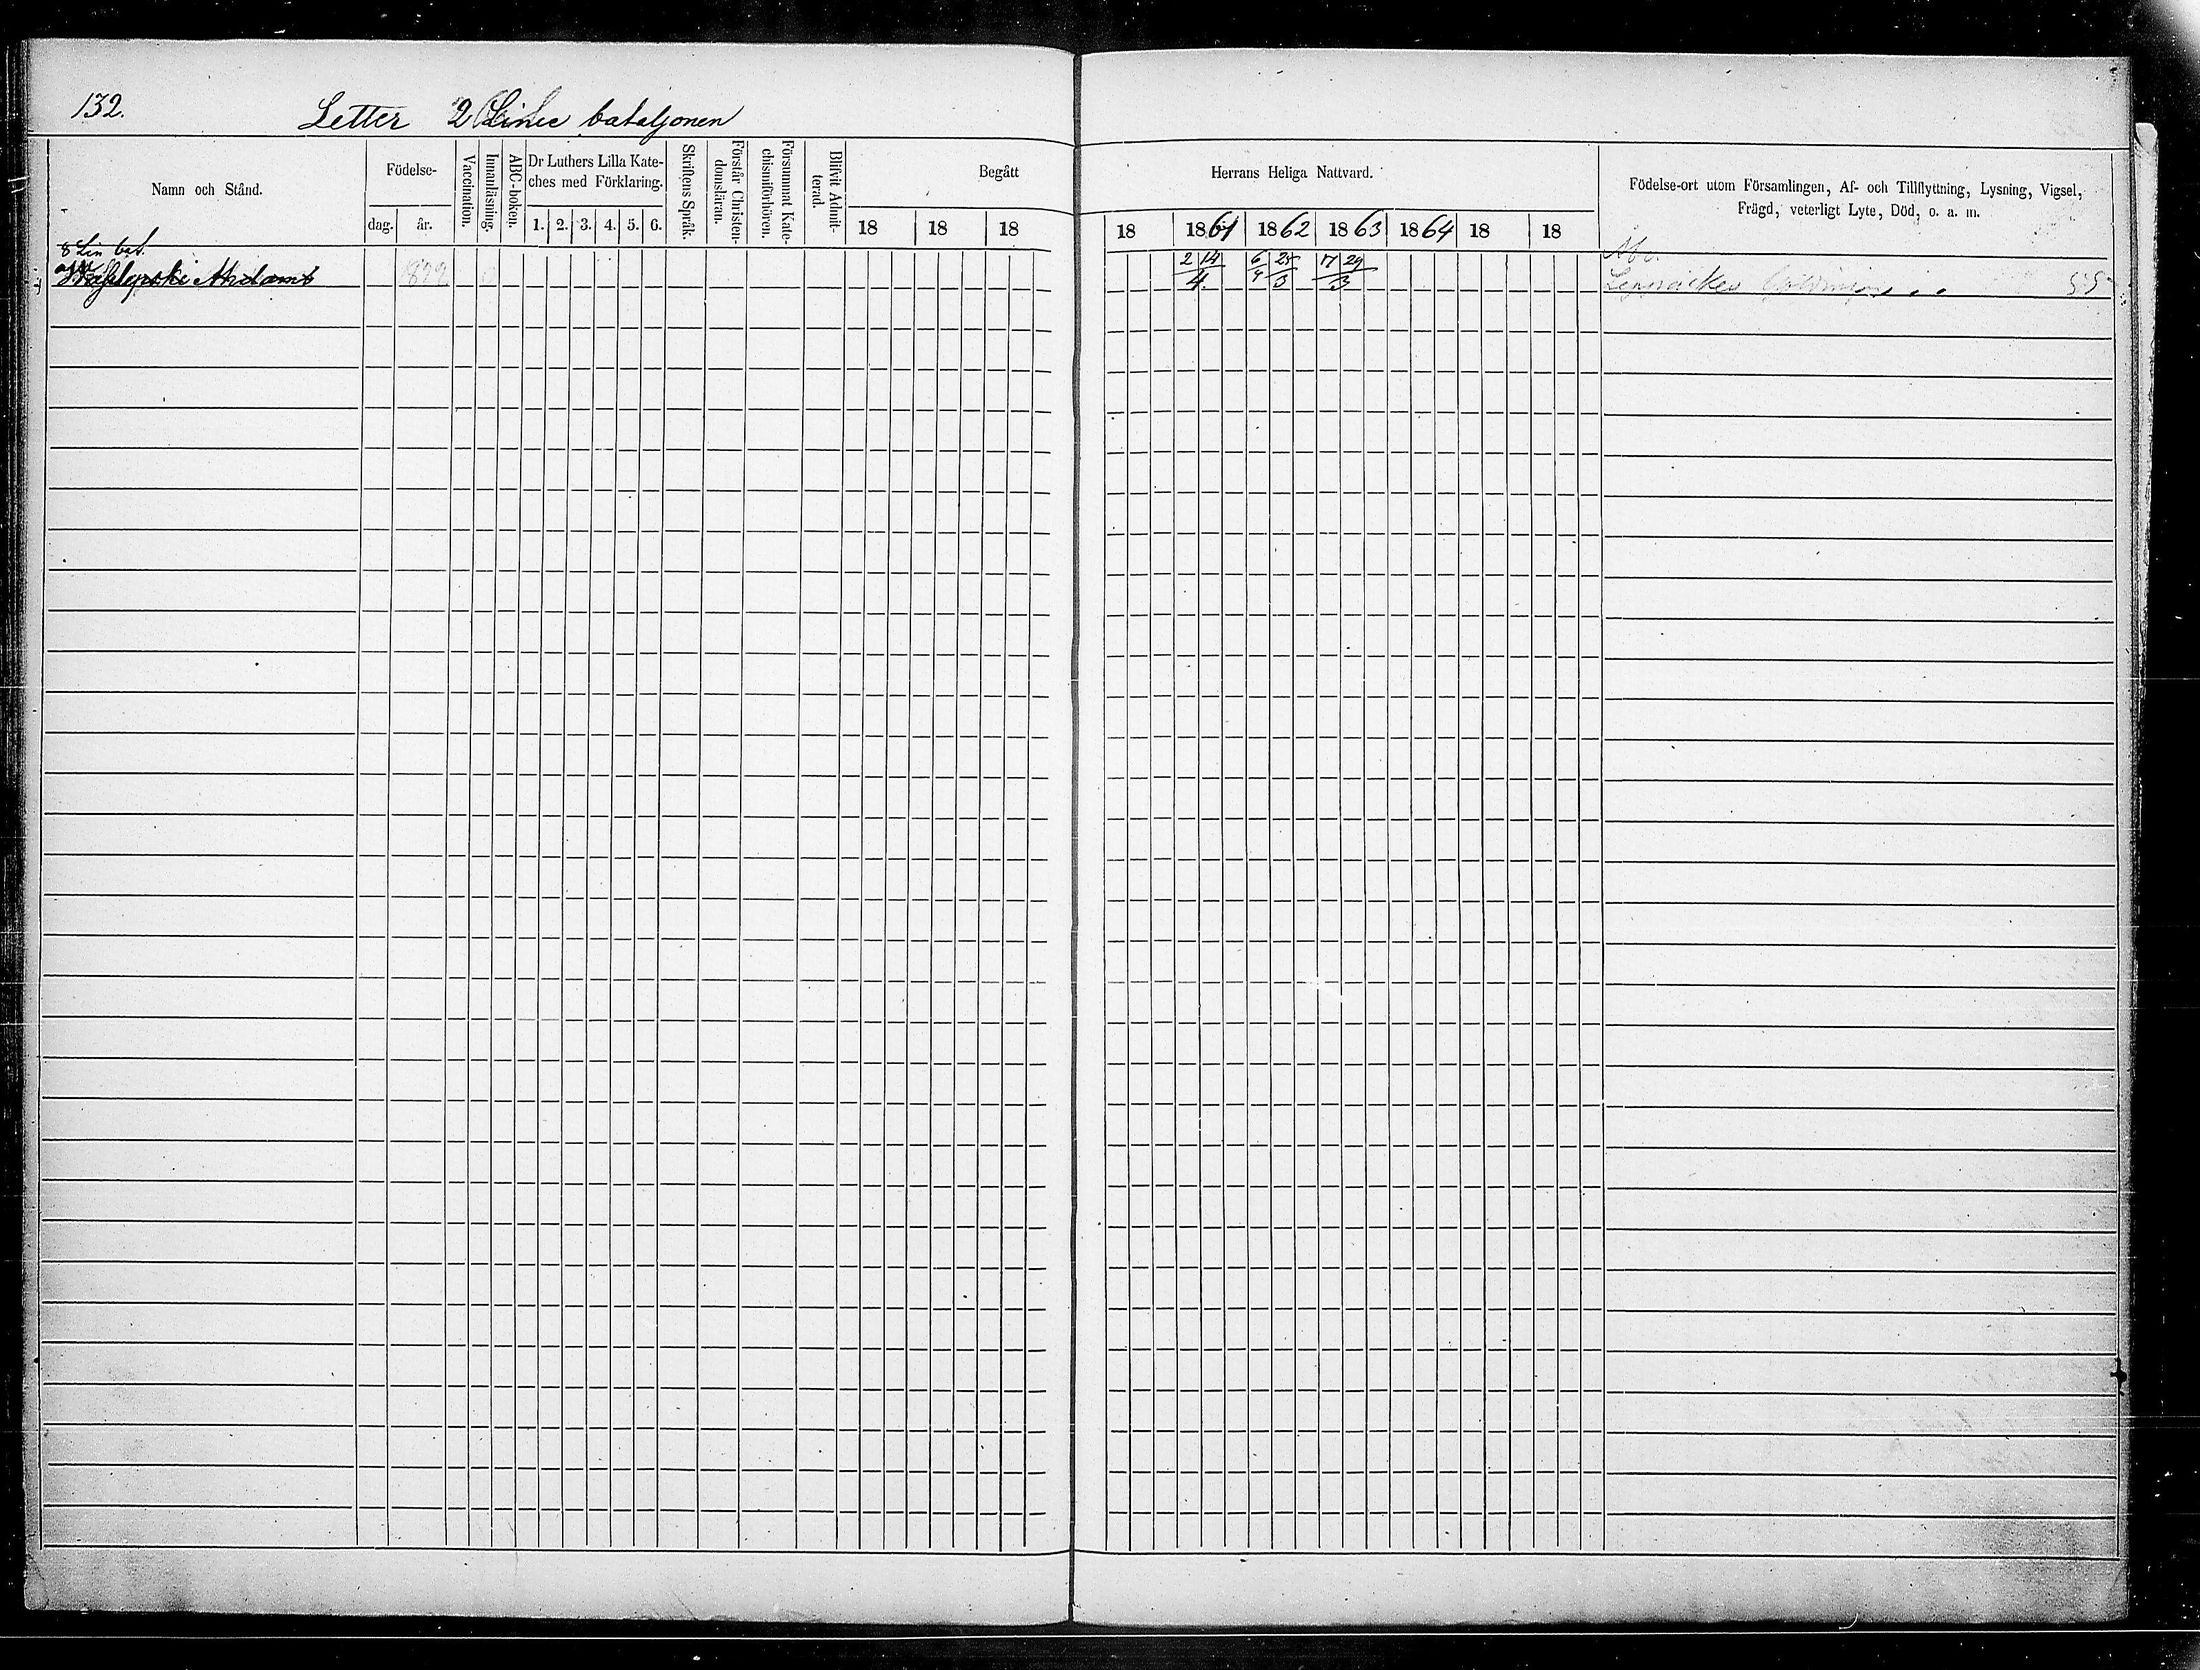 132.
Letter 2 Linie bataljonen
Namn och Stånd.
Födelse-
dag. år.
Vaccination.
Innanläsning.
ABC-boken.
Dr Luthers Lilla Kate-
ches med Förklaring.
1. 2. 3. 4. 5. 6.
Skriftens Språk.
Förstår Christen-
domsläran.
Försummat Kate-
chismiförhören.
Blifvit Admit-
terad.
Begått
18 18 18
Herrans Heliga Nattvard.
18 1861 1862 1863 1864 18 18
Födelse-ort utom Församlingen, Af- och Tillflyttning, Lysning, Vigsel,
Frägd, veterligt Lyte, Död, o. a. m.
8 Lin bat.
2 14 6 25 7 29
4. 4 3 3
55